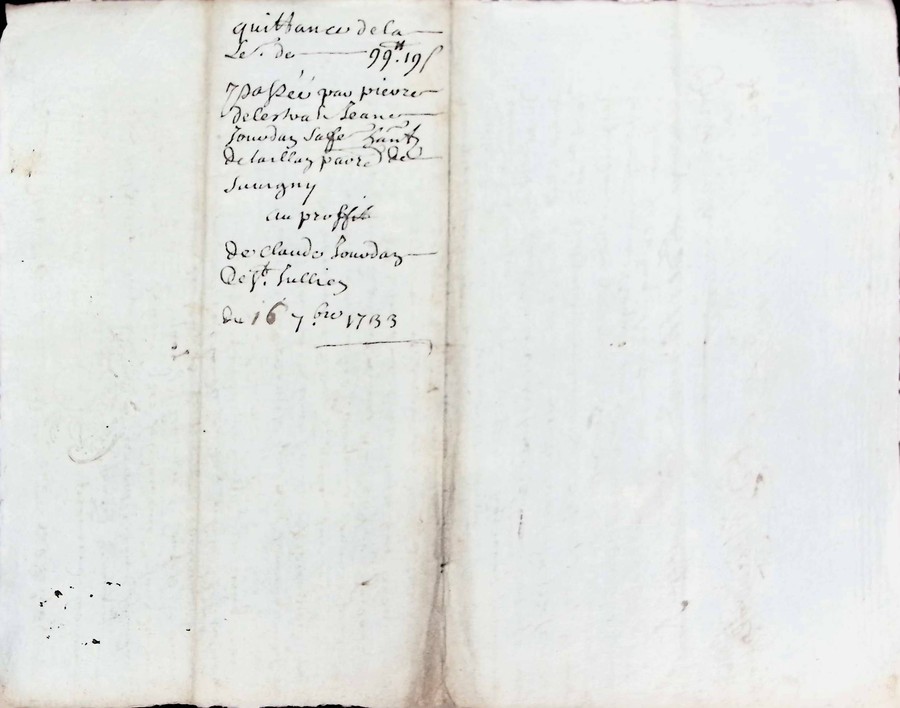 quittance de la
Se. de 99ᵗᵗ 19ˢ
passée par pierre
delestra & Jeane
Jourdan sa fe
de taillan parre de
Savigny
au proffit
de claude Jourdan
De Sᵗ. Jullien
du 16 7bre 1733